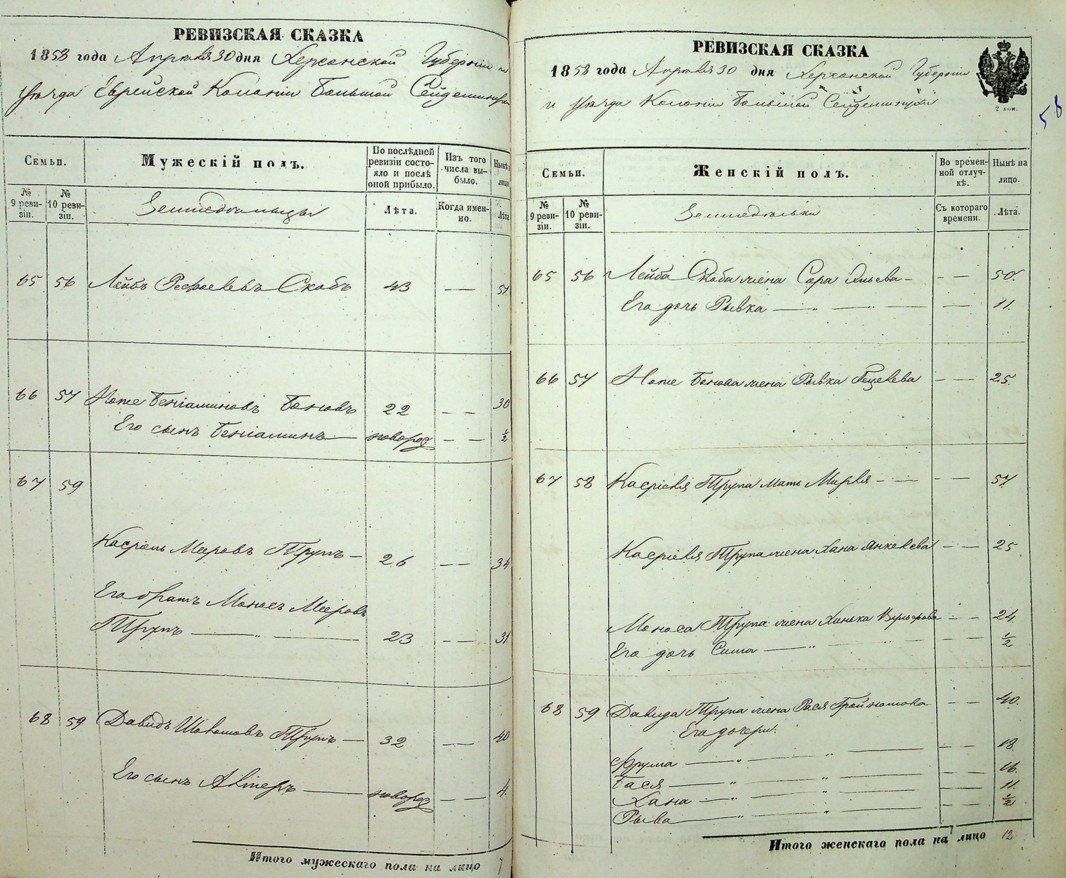 РЕВИЗСКАЯ СКАЗКА
1858 года Апреля 30 дня Херсонской Губерніи и
уѣзда Еврейской Колоніи Большой Сейдеминухи
Семьи.
Мужескій полъ.
По послѣдней ревизіи состояло и послѣ оной прибыло.
Изъ того числа выбыло.
Нынѣ на лицо
№ 9 ревизіи.
№ 10 ревизіи.
Земледѣльцы
Лѣта.
Когда именно.
Лѣта
65 56 Лейбъ Скобъ 43 — 51
66 57 Ноте Беніаминовъ Боновъ 22 — — 30
Его сынъ Беніаминъ — новорож — — ½
67 59
Касріель Мееровъ Трупъ — 26 — — 34
Его братъ Монос Мееровъ
Трупъ — 23 — — 31
68 59 Давидъ Трупъ — 32 — 40
Его сынъ — новорож — — 4
Итого мужескаго пола на лицо 7
РЕВИЗСКАЯ СКАЗКА
1858 года Апреля 30 дня Херсонской Губерніи
и уѣзда Колоніи Большой Сейдеминухи
58
Семьи.
Женскій полъ.
Во временной отлучкѣ.
Нынѣ на лицо.
№ 9 ревизіи.
№ 10 ревизіи.
Съ котораго времени.
Лѣта.
65 56 Лейба Скоба жена Сара — — 50
Его дочь Рывка — — — — 11
66 57 Ноте Бонова жена Рывка — — 25
67 58 Касріеля Трупа мать Мирля — — — 57
Касріеля Трупа жена Хана Янкелева — — 25
Моноса Трупа жена Ханька — — 24
Его дочь Сима — — — — ½
68 59 Давида Трупа жена Рася — — 40
Его дочери:
Фрума — " — " — — — 18
Бася — " — " — — — 16
Хана — " — " — — — 11
Рыва — " — " — — — ½
Итого женскаго пола на лицо 12